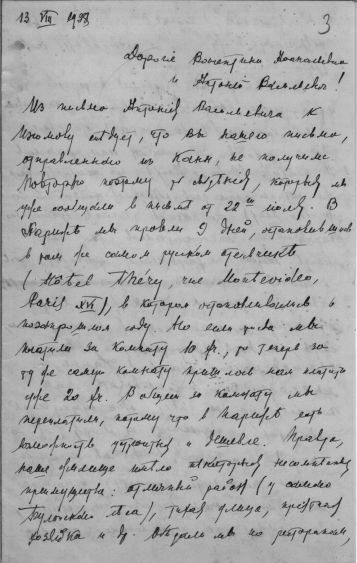 13 VIII 1938
3
Дорогие Валентина
и Антоний Васильевич!
Из письма Антония Васильевича к
Изюмову следует, что Вы нашего письма,
отправленного из Канн, не получили.
Повторяю поэтому те сведения, которые мы
уже сообщали в письме от 22го июля. В
Париже мы провели 9 дней, остановившись
в том же самом русском отельчике
(Hôtel Théry, rue Montevideo,
Paris XVI), в котором останавливались и
позапрошлом году. Но если тогда мы
платили за комнату 10 fr., то теперь за
ту же самую комнату пришлось нам платить
уже 20 fr. В общем за комнату мы
переплатили, потому что в Париже есть
возможность устроиться и дешевле. Правда,
наше жилище имело некоторые несомненные
преимущества: отличный район (у самого
Булонского леса), тихая улица,
хозяйка и др. Обедали мы по ресторанам,